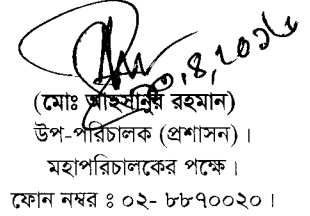 ২০.৪.২০১৬
(মোঃ আহসানুর রহমান)
উপ-পরিচালক (প্রশাসন)।
মহাপরিচালকের পক্ষে।
ফোন নম্বর ঃ ০২- ৮৮৭০০২০।